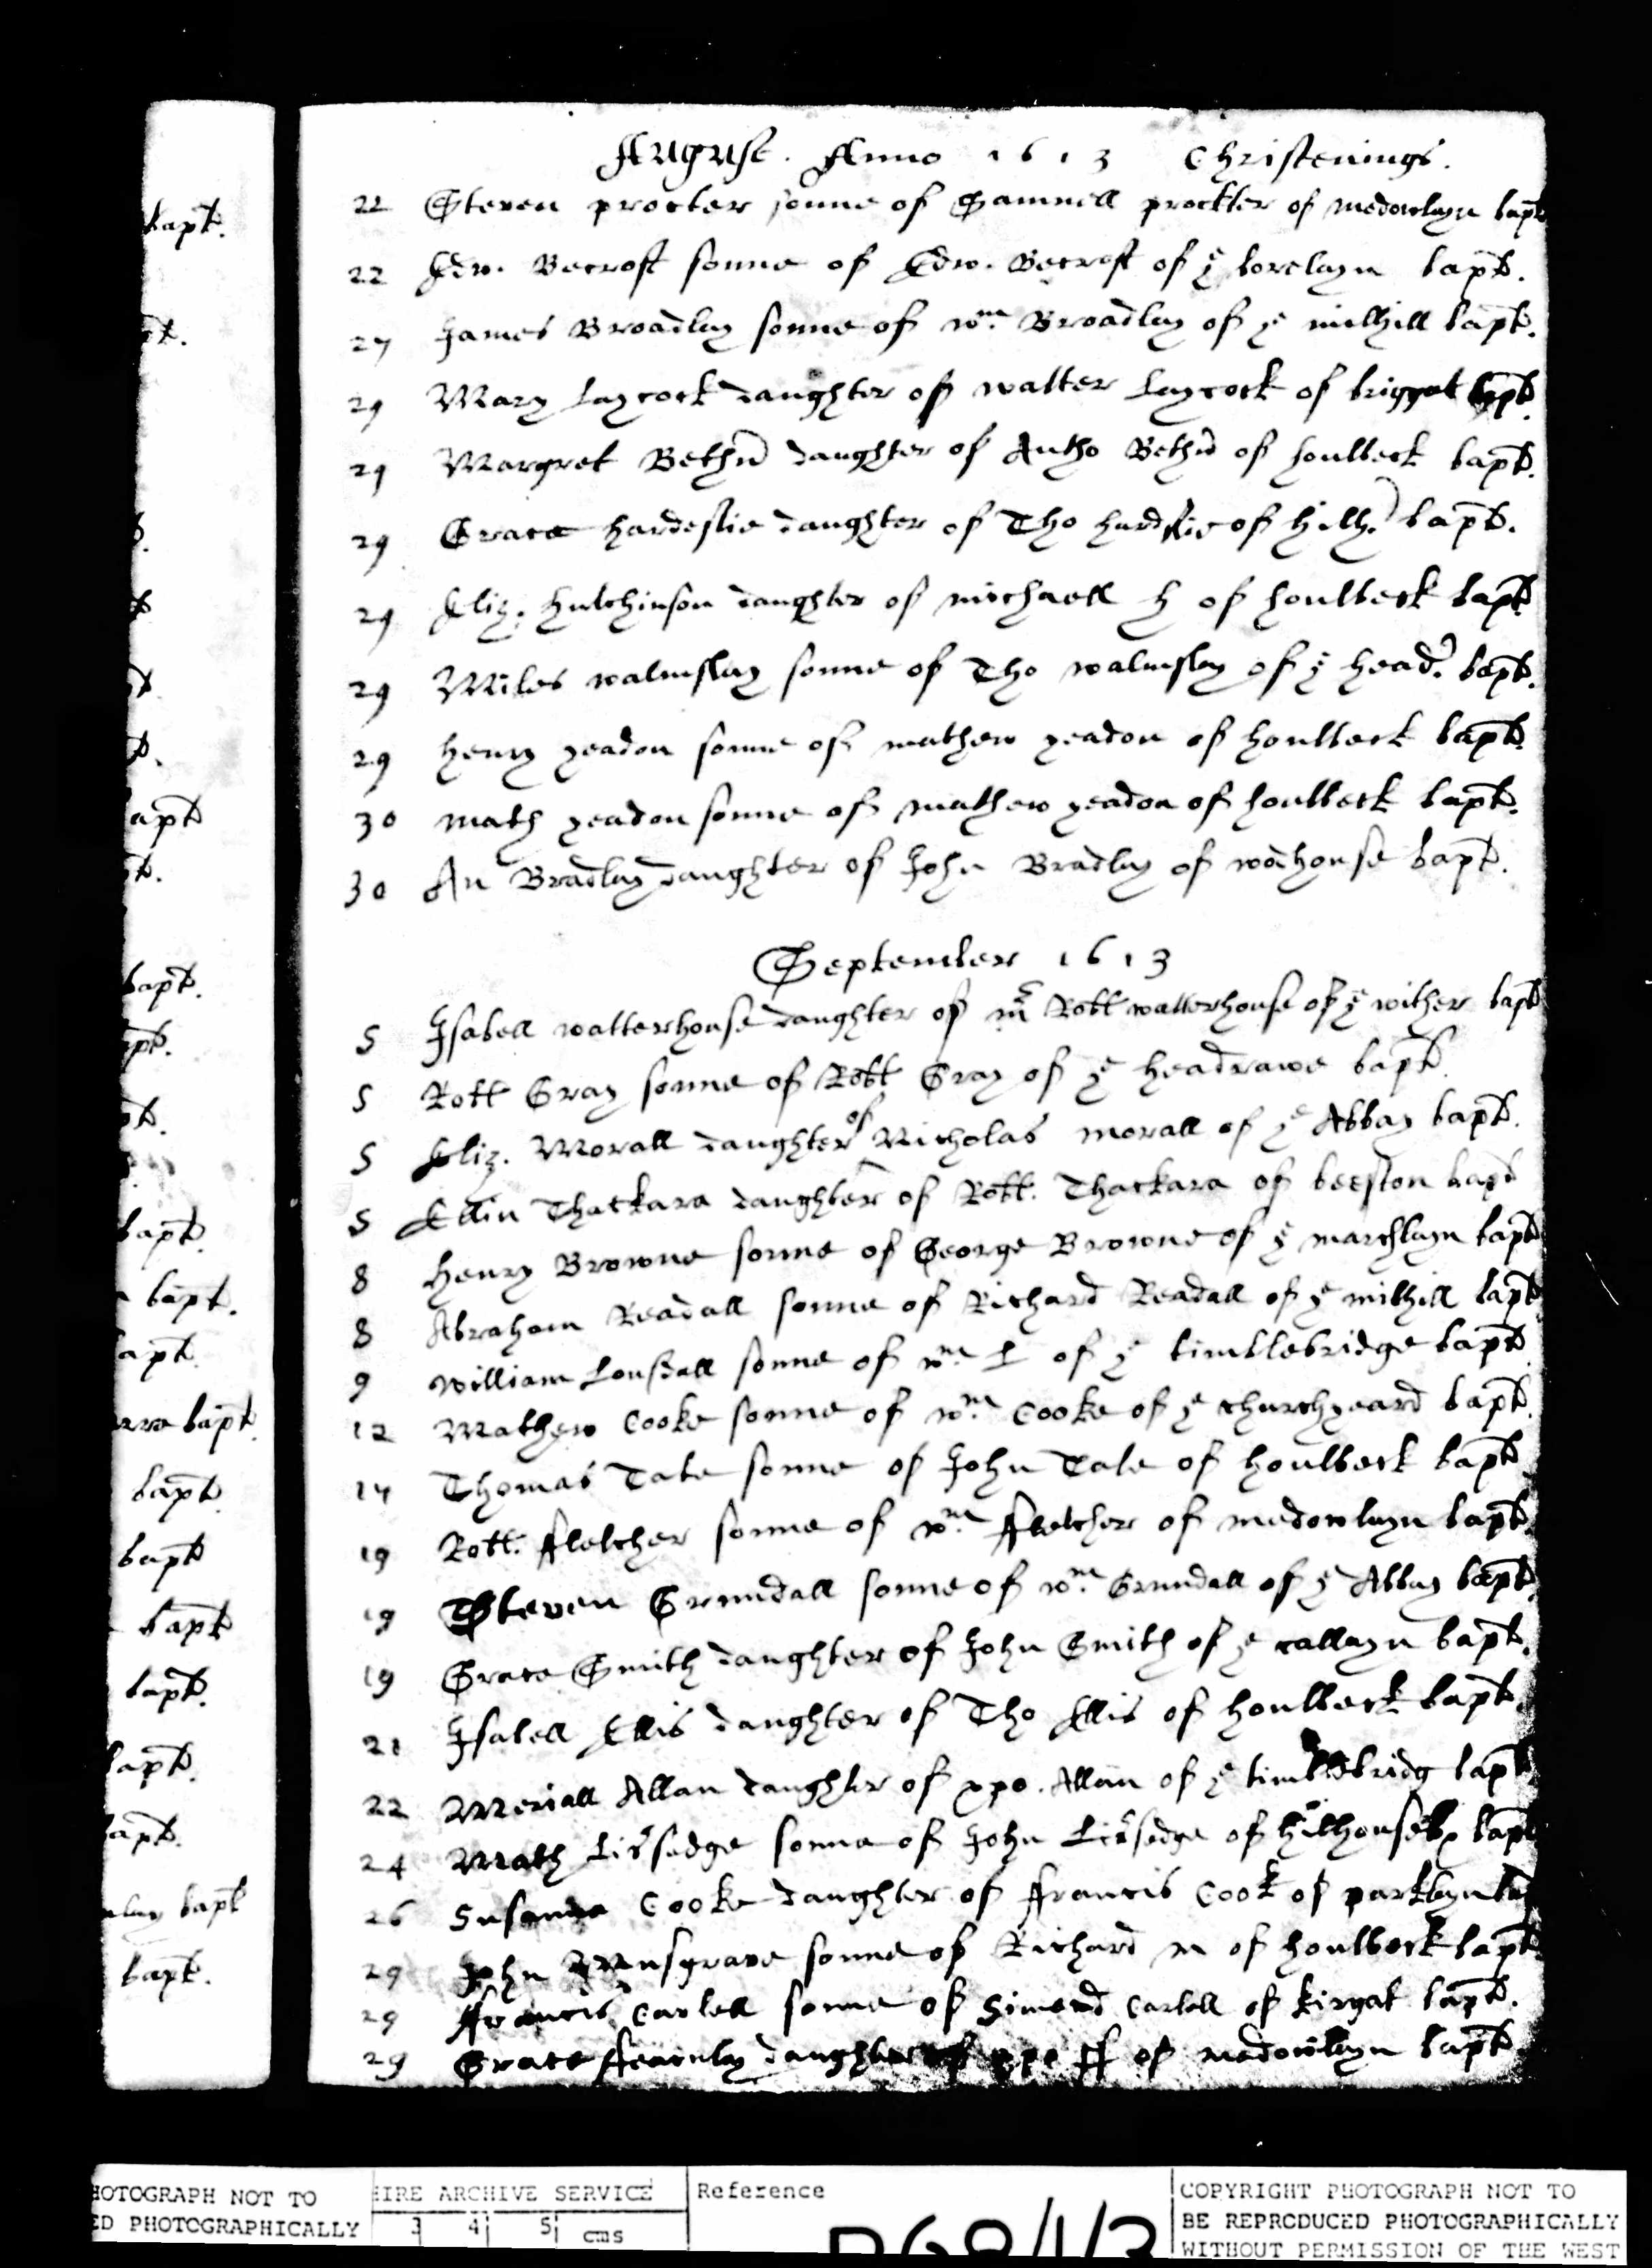 August. Anno 1613 Christenings.
22 Steven procter sonne of Samuell prockter of medowlayn bapt
22 Edw. Becroft sonne of Edw. Becroft of ye borelayn bapt.
27 James Broadlay sonne of wm. Broadlay of ye milhill bapt.
29 Mary Laycock daughter of walter Laycock of briggat bapt.
29 Margret Beth daughter of Antho Beth of houlbeck bapt.
29 Grace hardestie daughter of Tho hardstie of hilh. bapt.
29 Eliz. Hutchinson daughter of michaell h of houlbeck bapt.
29 Miles walmslay sonne of Tho walmslay of ye head. bapt.
29 henry yeadon sonne of mathew yeadon of houlbeck bapt.
30 math yeadon sonne of mathew yeadon of houlbeck bapt.
30 An Bradlay daughter of John Bradlay of wodhouse bapt.
September 1613
5 Isabell watterhouse daughter of mr Robt watterhouse of ye wither bapt
5 Robt Gray sonne of Robt Gray of ye headrawe bapt.
5 Eliz. Morall daughter of Nicholas morall of ye Abbay bapt.
5 Ellin Thackara daughter of Robt. Thackara of beeston bapt
8 Henry Browne sonne of George Browne of ye marchlayn bapt
8 Abraham Readall sonne of Richard Readall of ye milhill bapt
9 William Lonsdall sonne of wm. L of ye timblebridge bapt.
12 Mathew Cooke sonne of wm. Cooke of ye churchyeard bapt.
14 Thomas Tate sonne of John Tate of houlbeck bapt.
19 Robt. fletcher sonne of wm. fletcher of medowlayn bapt.
19 Steven Grundall sonne of wm. Grundall of ye Abbay bapt.
19 Grace Smith daughter of John Smith of ye callayn bapt.
21 Isabell Ellis daughter of Tho Ellis of houlbeck bapt.
22 Meriall Allan daughter of xpo. Allan of ye timblebridg bapt
24 Math sonne of John of bapt
26 Susanna Cooke daughter of francis Cook of parklayn bap
29 John Musgrave sonne of Richard m of houlbeck bapt
29 francis Carlell sonne of Simond Carlell of kirgat bapt.
29 Grace fearnlay daughter of xpo ff of medowlayn bapt.
bapt.
pt.
apt
bapt.
bapt.
bapt.
apt
bapt
bapt.
bapt
bapt
bapt.
bapt.
apt.
bapt
bapt.
HOTOGRAPH NOT TO
ED PHOTOGRAPHICALLY
HIRE ARCHIVE SERVICE
3 4 5 cms
Reference
COPYRIGHT PHOTOGRAPH NOT TO
BE REPRODUCED PHOTOGRAPHICALLY
WITHOUT PERMISSION OF THE WEST